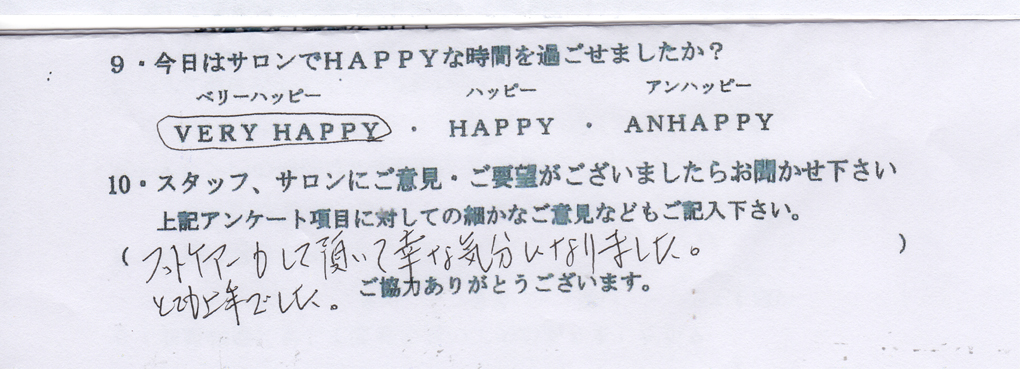 9・今日はサロンでHAPPYな時間を過ごせましたか？
ベリーハッピー ハッピー アンハッピー
VERY HAPPY ・ HAPPY ・ ANHAPPY
10・スタッフ、サロンにご意見・ご要望がございましたらお聞かせ下さい
上記アンケート項目に対しての細かなご意見などもご記入下さい。
( フットケアーして頂いて幸な気分になりました。 )
とても上手でした。
ご協力ありがとうございます。